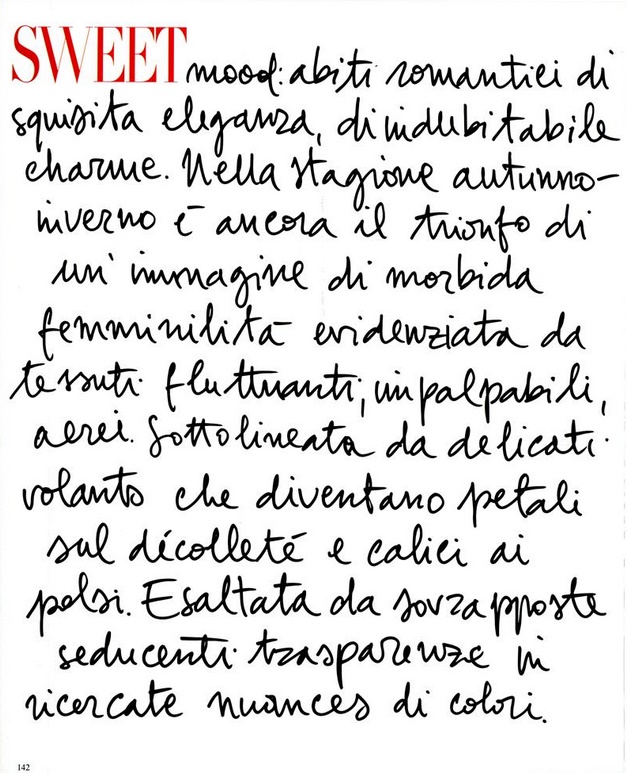 SWEET mood: abiti romantici di
squisita eleganza, di indubitabile
charme. Nella stagione autunno-
inverno è ancora il trionfo di
un'immagine di morbida
femminilità evidenziata da
tessuti fluttuanti, impalpabili,
aerei. Sottolineata da delicati
volants che diventano petali
sul décolleté e calici ai
polsi. Esaltata da sovrapposte
seducenti trasparenze in
ricercate nuances di colori.
142